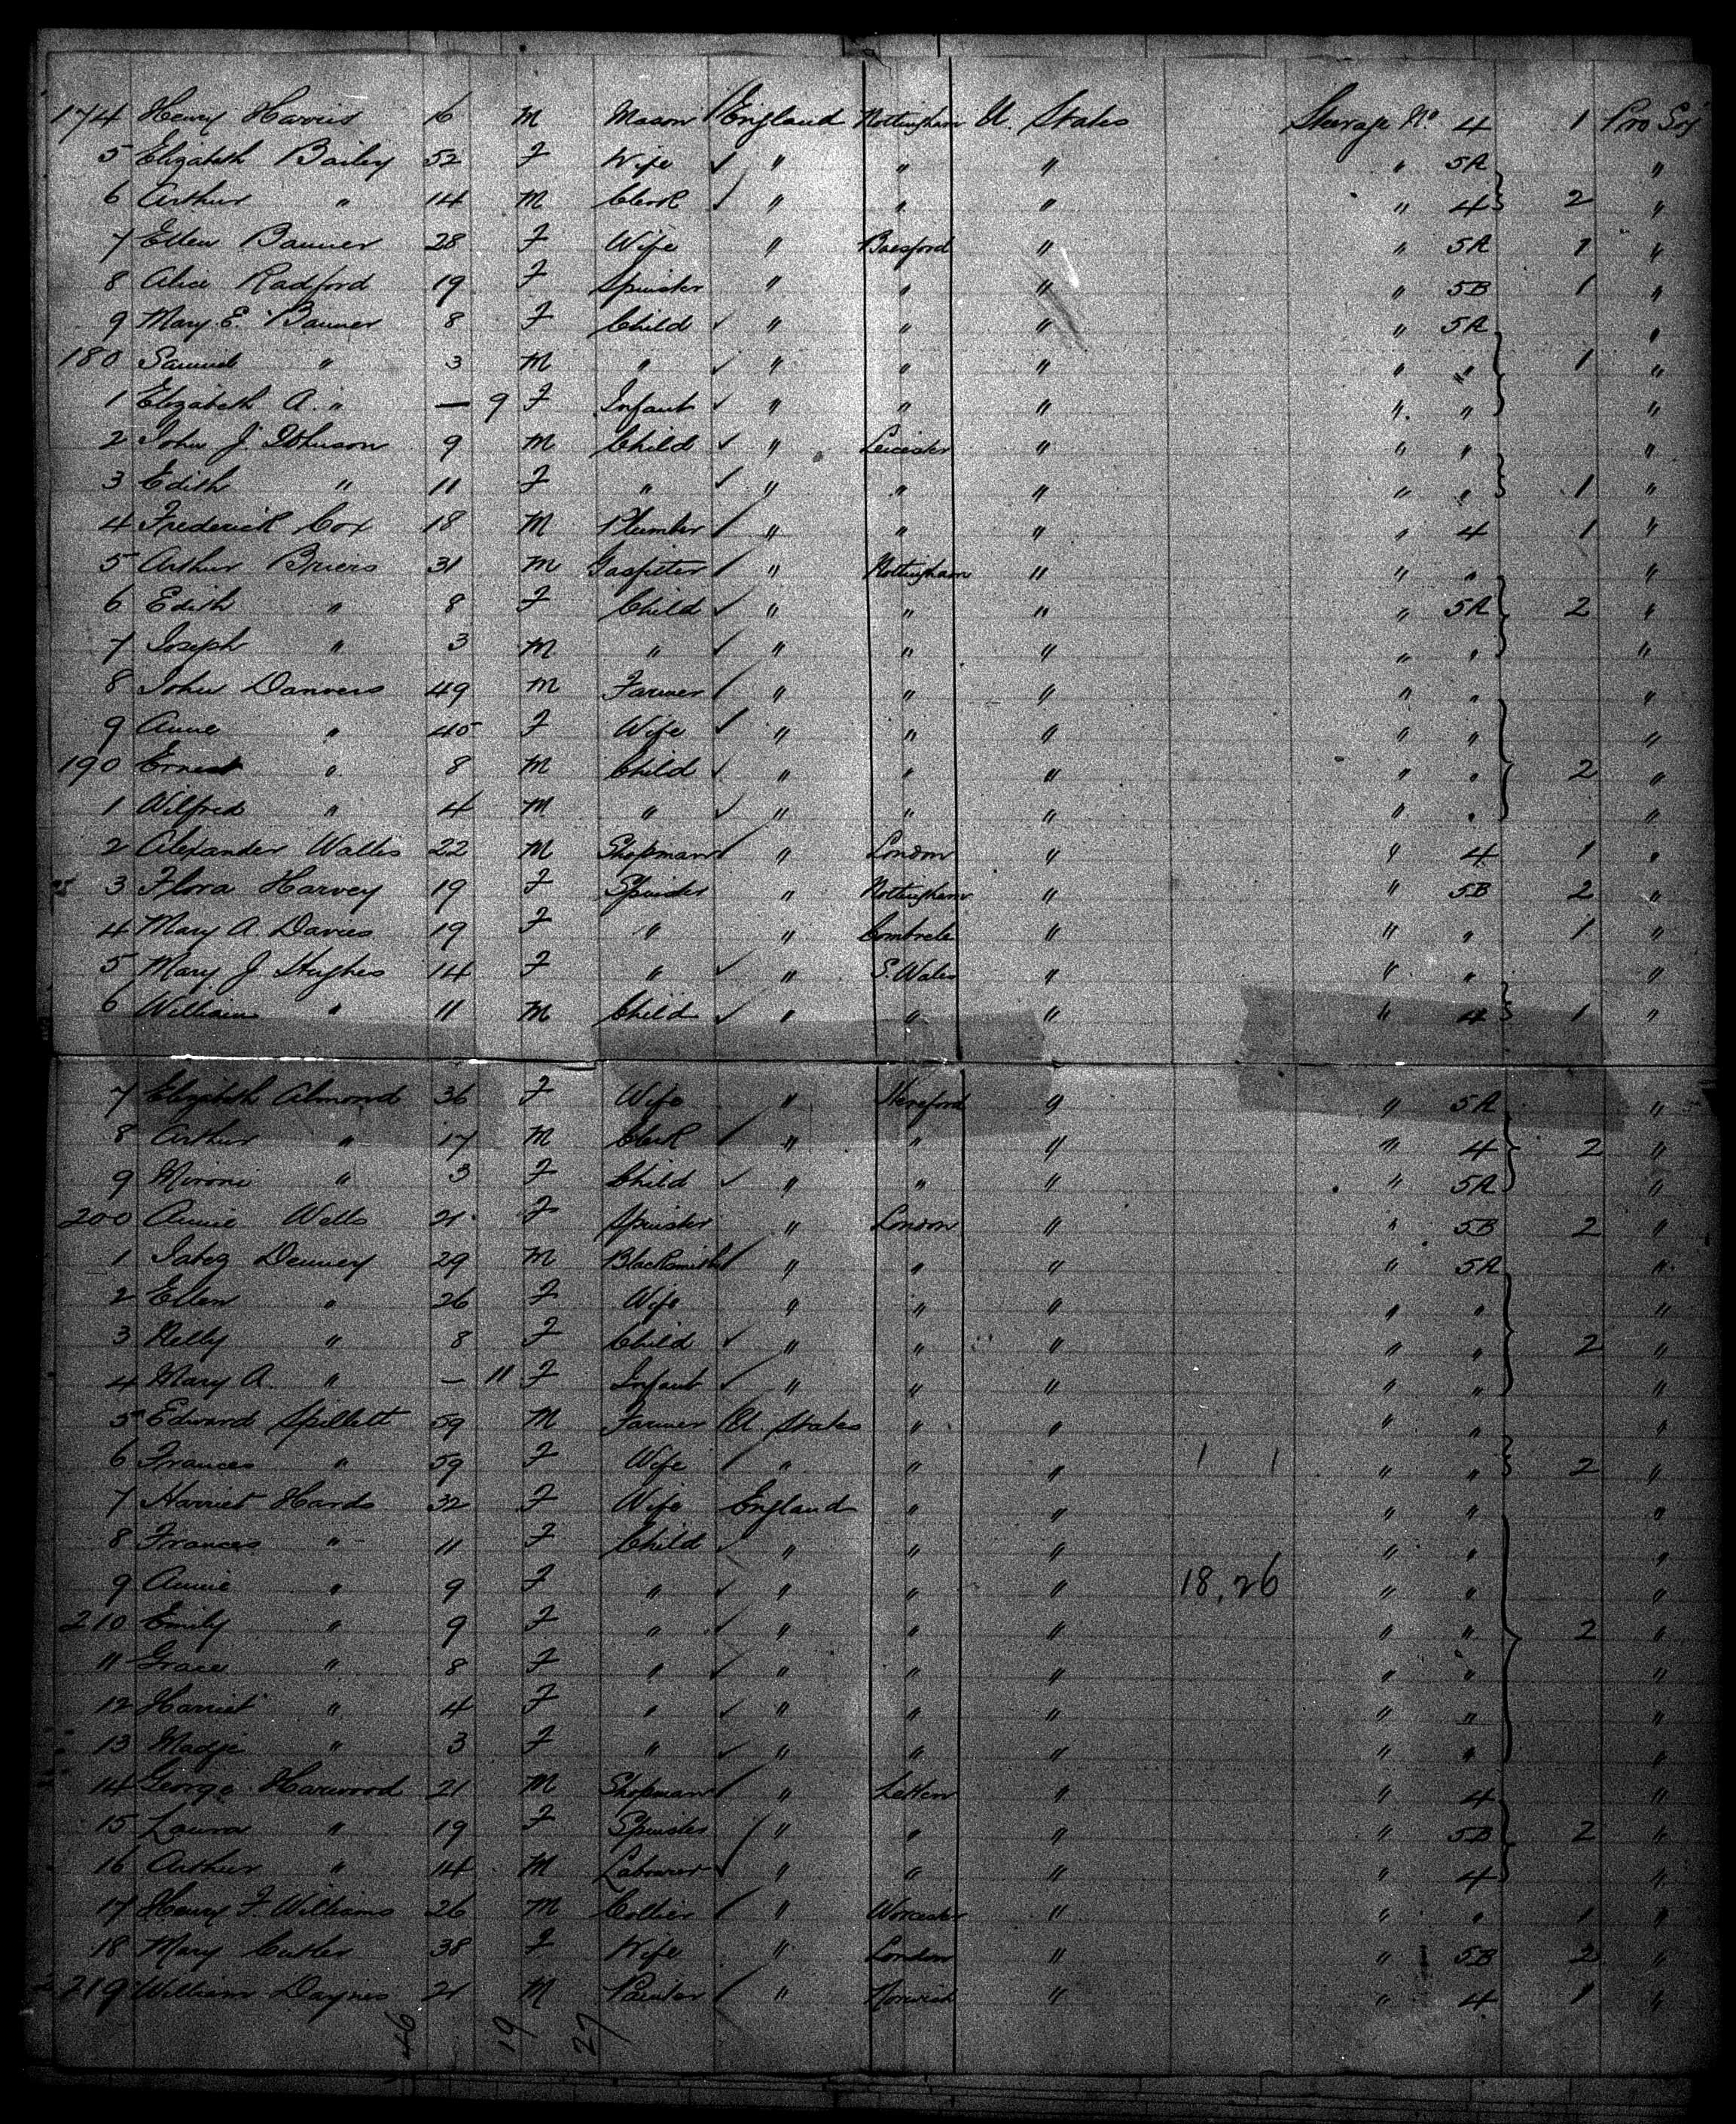 174 Henry Harris 16 M Mason England Nottingham U. States Steerage No 4 1 Pro Soj
5 Elizabeth Bailey 52 F Wife " " " " 5A "
6 Arthur " 14 M Clerk " " " " 4 2 "
7 Ellen Banner 28 F Wife " Basford " " 5A 1 "
8 Alice Radford 19 F Spinster " " " " 5B 1 "
9 Mary E. Banner 8 F Child " " " " 5A "
180 Samuel " 3 M " " " " " " 1 "
1 Elizabeth A. " — 9 F Infant " " " " " "
2 John J. Johnson 9 M Child " Leicester " " " "
3 Edith " 11 F " " " " " " 1 "
4 Frederick Cox 18 M Plumber " " " " 4 1 "
5 Arthur Briers 31 M Gasfitter " Nottingham " " " "
6 Edith " 8 F Child " " " " 5A 2 "
7 Joseph " 3 M " " " " " " "
8 John Danvers 49 M Farmer " " " " " "
9 Anne " 45 F Wife " " " " " "
190 Ernest " 8 M Child " " " " " 2 "
1 Wilfred " 4 M " " " " " " "
2 Alexander Wallis 22 M Shopman " London " " 4 1 "
3 Flora Harvey 19 F Spinster " Nottingham " " 5B 2 "
4 Mary A Davies 19 F " " " " " 1 "
5 Mary J Hughes 14 F " " S. Wales " " " "
6 William " 11 M Child " " " " 4 1 "
7 Elizabeth Almond 36 F Wife " Hereford " " 5A "
8 Arthur " 17 M Clerk " " " " 4 2 "
9 " 3 F Child " " " " 5A "
200 Annie Wells 21 F Spinster " London " " 5B 2 "
1 Jabez Denney 29 M Blacksmith " " " " 5A "
2 Ellen " 26 F Wife " " " " " "
3 Nelly " 8 F Child " " " " " 2 "
4 Mary A. " — 11 F Infant " " " " " "
5 Edward Spillett 59 M Farmer U. States " " " " "
6 Frances " 59 F Wife " " " 1 1 " " 2 "
7 Harriet Hards 32 F Wife England " " " " "
8 Frances " 11 F Child " " " " " "
9 Annie " 9 F " " " " 18,26 " " "
210 Emily " 9 F " " " " " " 2 "
11 Grace " 8 F " " " " " " "
12 Harriet " 4 F " " " " " " "
13 Madge " 3 F " " " " " " "
14 George Harwood 21 M Shopman " " " 4 "
15 Laura " 19 F Spinster " " " " 5B 2 "
16 Arthur " 14 M Labourer " " " " 4 "
17 Henry F. Williams 26 M Collier " Worcester " " " 1 "
18 Mary Cutler 38 F Wife " London " " 5B 2 "
219 William Daynes 21 M Painter " Norwich " " 4 1 "
46 19 27